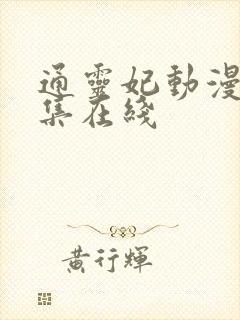 通靈妃動漫
集在綫
黃行輝